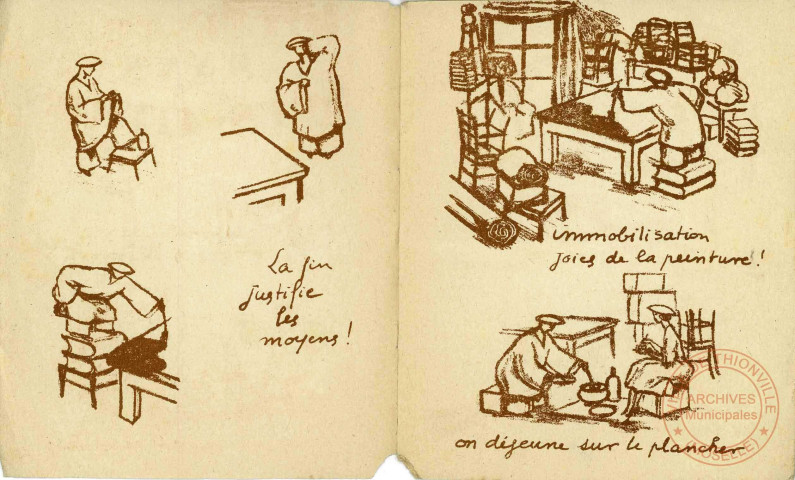 La fin
justifie
les
moyens !
immobilisation
joies de la peinture !
on déjeune sur le plancher
THIONVILLE
ARCHIVES
Municipales
(MOSELLE)